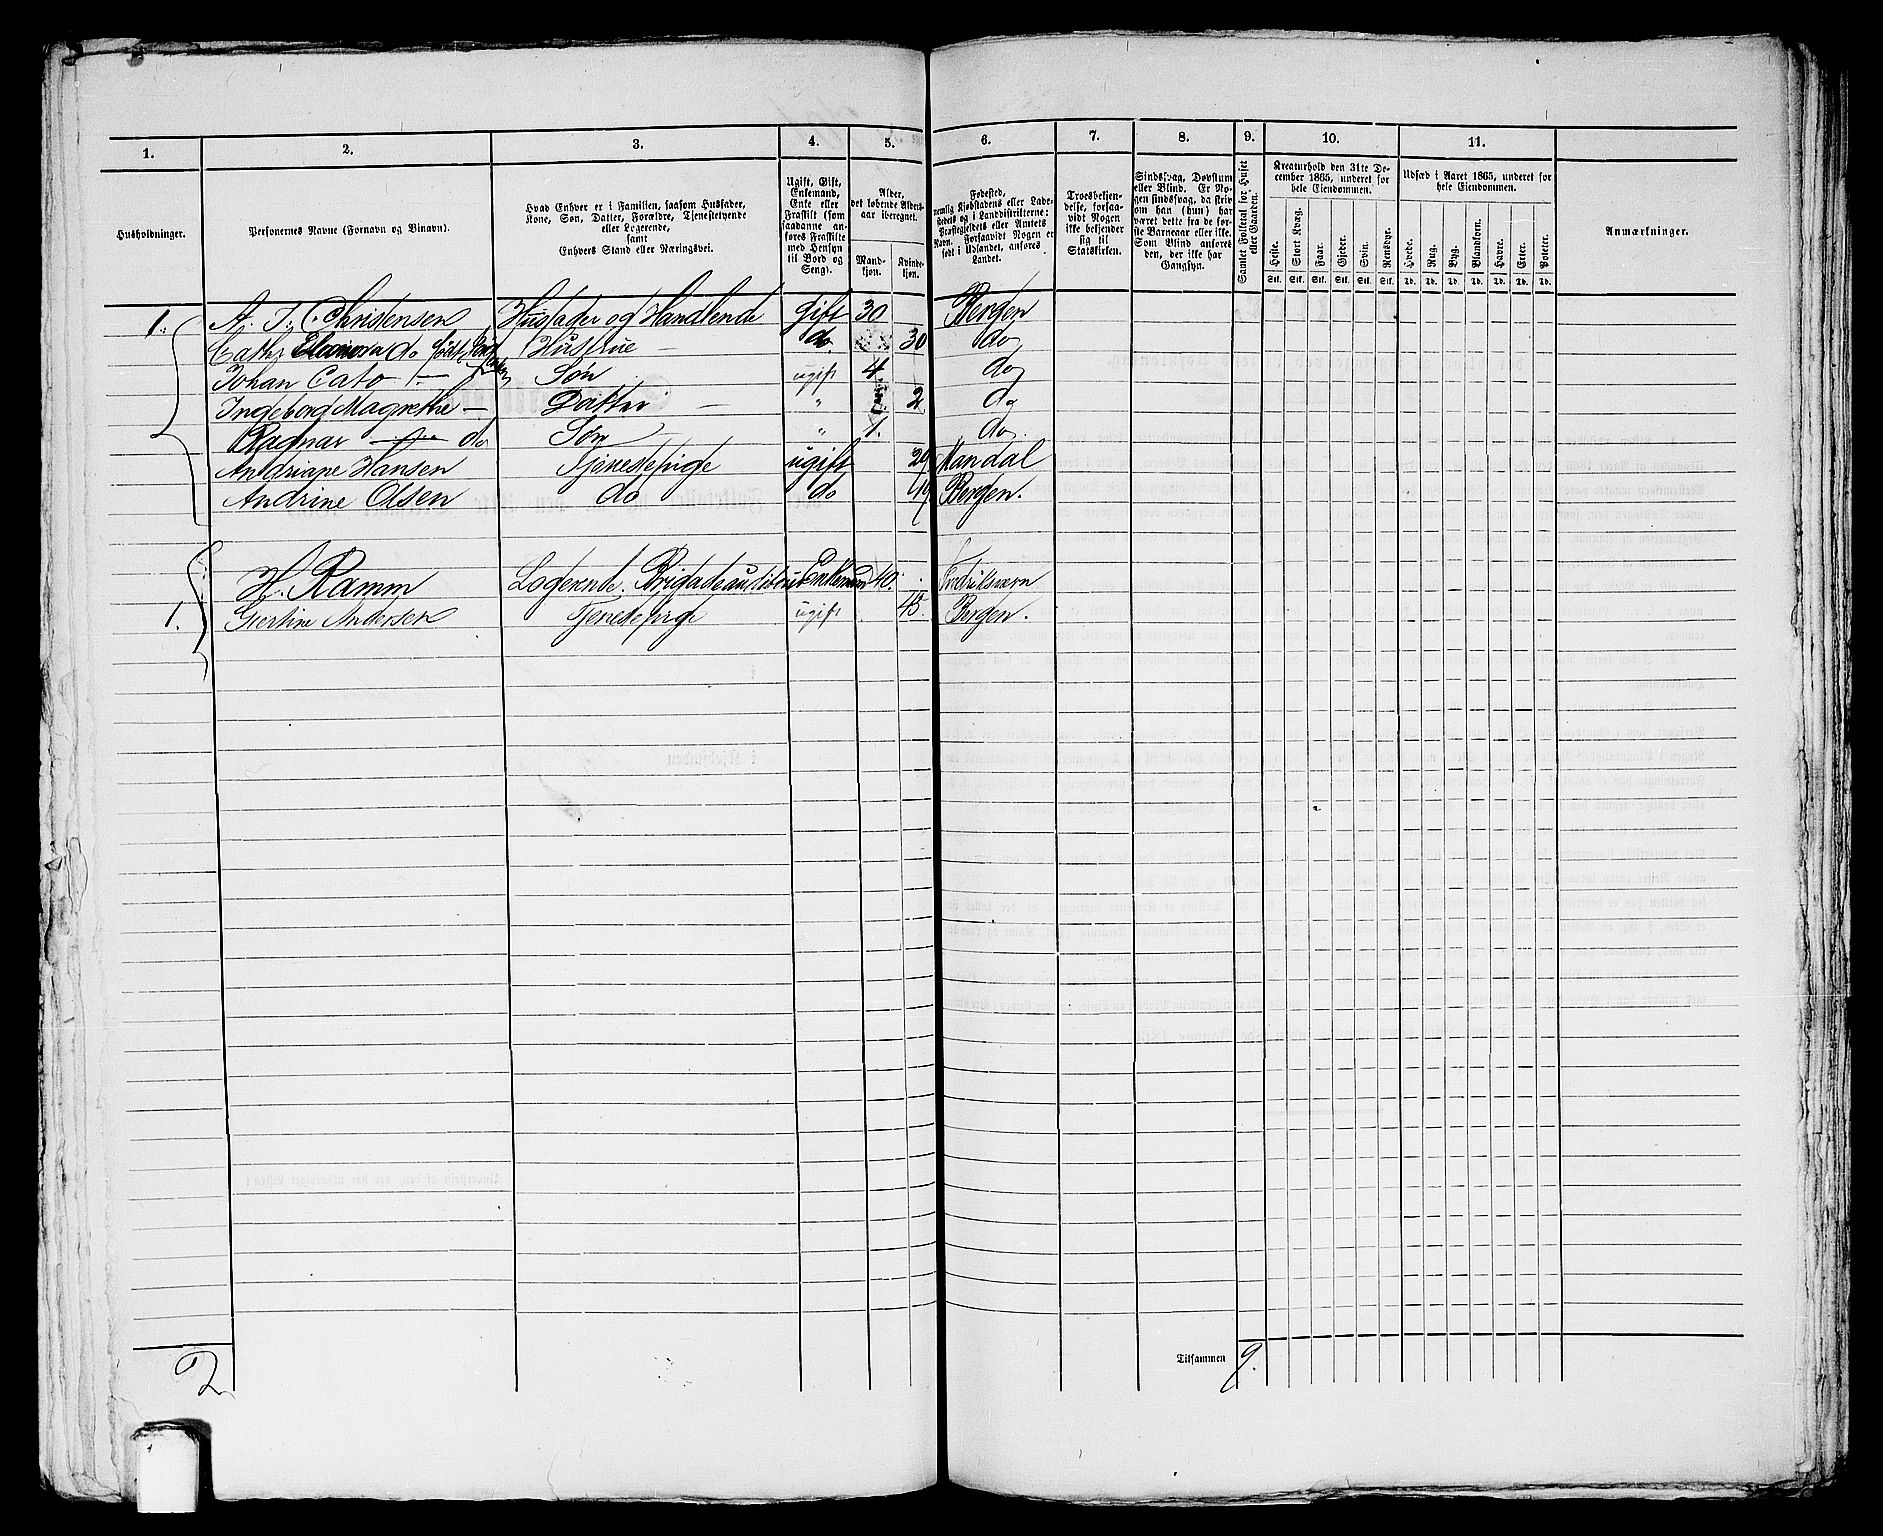 1. 2. 3. 4. 5. 6. 7. 8. 9. 10. 11.
Husholdninger.
Personernes Navne (Fornavn og Binavn).
Hvad Enhver er i Familien, saasom Husfader,
Kone, Søn, Datter, Forældre, Tjenestetyende
eller Logerende,
samt
Enhvers Stand eller Næringsvei.
Ugift, Gift,
Enkemand,
Enke eller
Fraskilt (som
saadanne an-
føres Fraskilte
med Hensyn
til Bord og
Seng).
Alder,
det løbende Alders-
aar iberegnet.
Mand-
kjøn.
Kvinde-
kjøn.
Fødested,
nemlig Kjøbstadens eller Lade-
stedets og i Landdistrikterne:
Præstegjeldets eller Amtets
Navn. Forsaavidt Nogen er
født i Udlandet, anføres
Landet.
Troesbekjen-
delse, forsaa-
vidt Nogen
ikke bekjender
sig til
Statskirken.
Sindssvag, Døvstum
eller Blind. Er No-
gen sindssvag, da skriv
om han (hun) har
været dette fra de før-
ste Barneaar eller ikke.
Som Blind anføres
den, der ikke har
Gangsyn.
Samlet Folketal for Huset
eller Gaarden.
Kreaturhold den 31te De-
cember 1865, underet for
hele Eiendommen.
Heste. Stort Kvæg. Faar. Gjeder. Svin. Rensdyr.
Stk. Stk. Stk. Stk. Stk. Stk.
Udsæd i Aaret 1865, underet for
hele Eiendommen.
Hvede. Rug. Byg. Blandkorn. Havre. Erter. Poteter.
Td. Td. Td. Td. Td. Td. Td.
Anmærkninger.
1. A. J. Christensen Husfader og Handlende gift 30 Bergen
Cathr Eleonora do født Hustrue - do 30 do
Johan Cato - Søn ugift 4. do
Ingeborg Magrethe - Datter - " 2 do
Ragnar - do Søn " 1. do
Andriane Hansen Tjenestepige ugift 29 Mandal
Andrine Olsen do do 19 Bergen.
1. H. Ramm Logerende. Brigadeauditeur Enkemand 40. Fredriksværn
Giertine Andersen Tjenestepige ugift 45. Bergen.
2 Tilsammen 9.